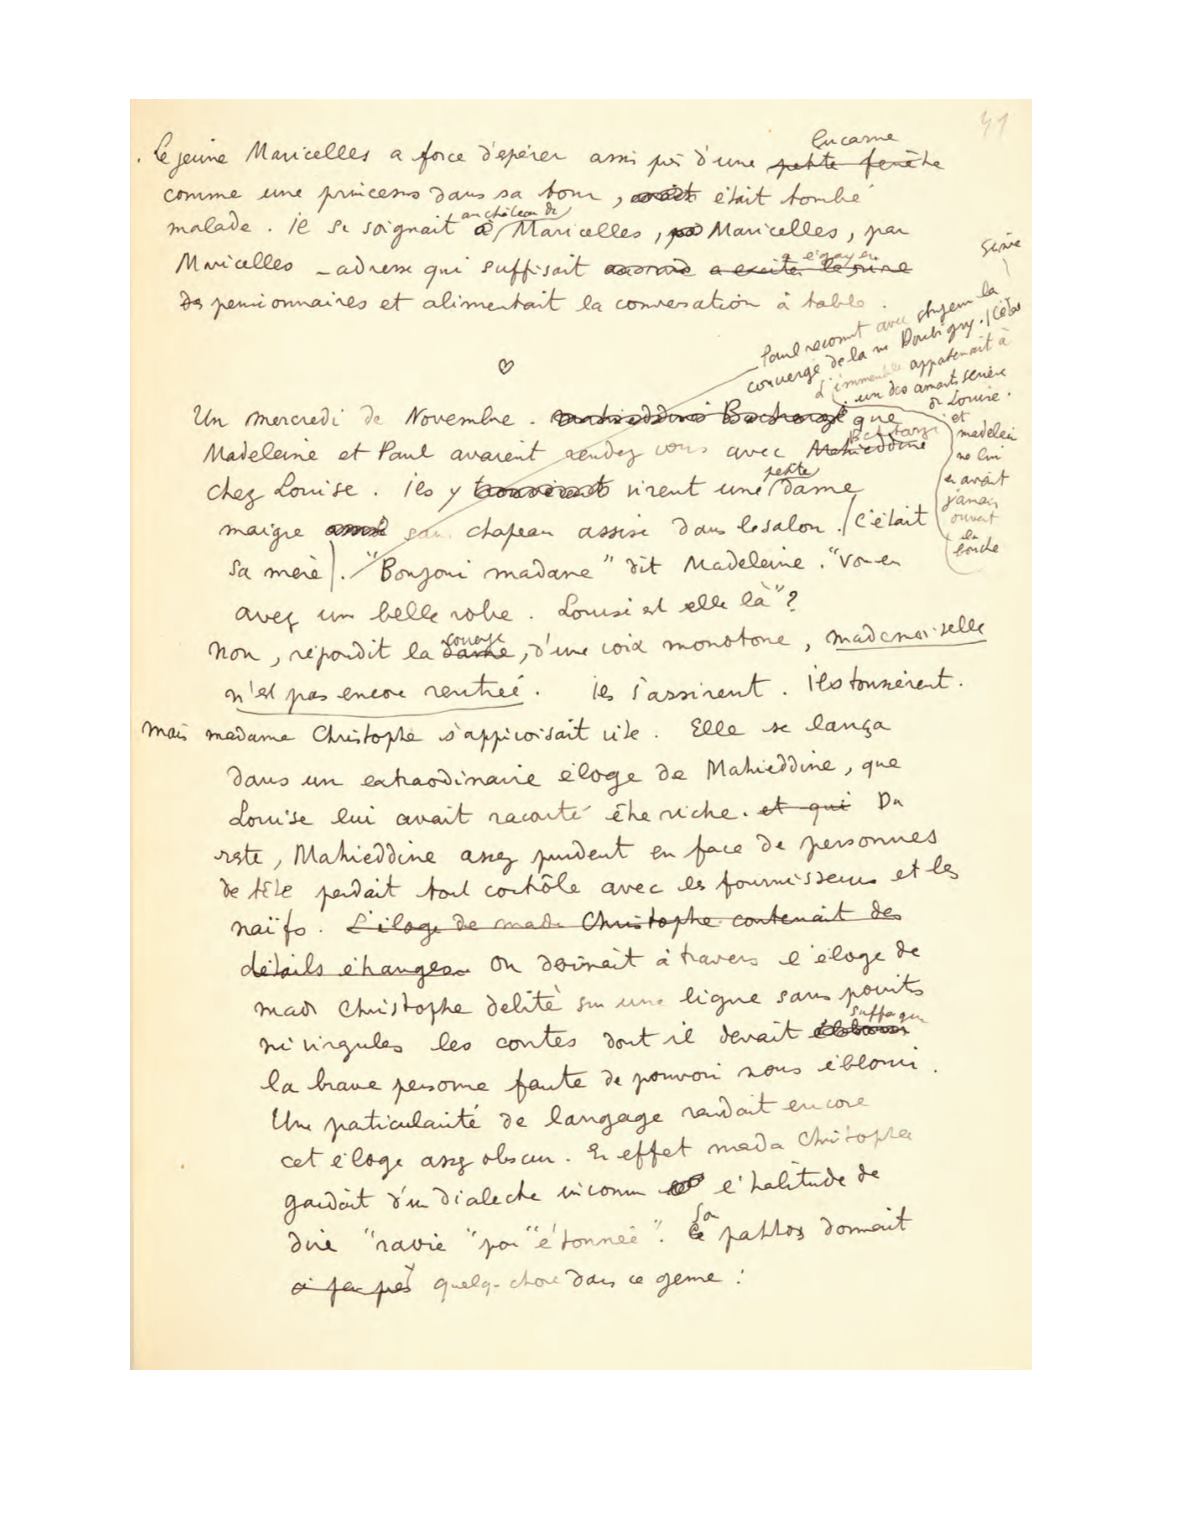 41
lucarne
. Le jeune Maricelles a force d'epérer assis près d'une petite fenêtre
comme une princesse dans sa tour, était tombé
malade. Il se soignait au château de Maricelles, Maricelles, par
Maricelles – adresse qui suffisait a égayer
des pensionnaires et alimentait la conversation à table.
Paul reconnut avec stupeur la
concierge de la rue Daubigny. (Cet
l'immeuble appartenait à
un des amants
de Louise.
et
madelein
ne lui
en avait
jamais
ouvert
la
bouche
Un mercredi de Novembre. que
Madeleine et Paul avaient rendez vous avec Mahieddine
Bachtarzi
chez Louise. ils y virent une petite dame
maigre sans chapeau assise dans le salon. (C'était
sa mère). "Bonjour madame" dit Madeleine. "Vous en
avez un belle robe. Louise est elle là"?
Non, répondit la dame, d'une voix monotone, mademoiselle
n'est pas encore rentrée. ils s'assirent. ils toussèrent.
Mais madame Christophe s'apprivoisait vite. Elle se lança
dans un extraordinaire éloge de Mahieddine, que
Louise lui avait raconté être riche. et qui Du
reste, Mahieddine assez prudent en face de personnes
de tête perdait tout contrôle avec les fournisseurs et les
naïfs. L'éloge de mada Christophe contenait des
détails étranges. On devinait à travers l'éloge de
mada Christophe débité sur une ligne sans points
ni virgules les contes dont il devait suffoquer
la brave personne faute de pouvoir nous éblouir.
Une particularité de langage rendait encore
cet éloge assez obscur. En effet mada Christophe
gardait d'un dialecte inconnu l'habitude de
dire "ravie" pour "étonnée". Sa pathos donnait
à peu près quelq. chose dans ce genre :